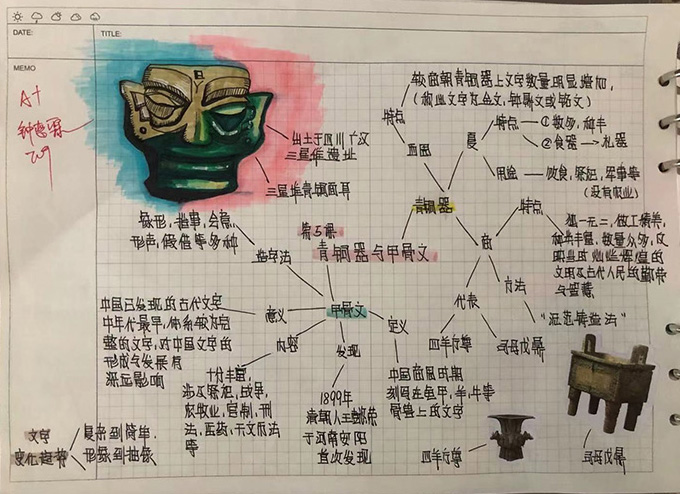 DATE:
TITLE:
MEMO
A+
出土于四川广汉
三星堆遗址
三星堆青铜面具
较商朝青铜器上文字数量明显增加,
(称此文字为金文,钟鼎文或铭文)
特点
西周
夏
特点
①数多,种丰
②食器→礼器
用途
饮食,祭祀,军事等
(没有农业)
青铜器
商
特点
独一无二,做工精美,
种类丰富,数量众多,反
文明及古代人民的勤劳
与智慧
方法
“泥范铸造法”
代表
四羊方尊
司母戊鼎
第5课
青铜器与甲骨文
象形,指事,会意,
形声,假借等多种
造字法
甲骨文
意义
中国已发现的古代文字
中年代最早,体系较为完
整的文字,对中国文字的
形成与发展有
深远影响
内容
十分丰富,
涉及祭祀,战争,
农牧业,官制,刑
法,医药,天文历法
等
发现
1899年
清朝人王懿荣
于河南安阳
首次发现
定义
中国商周时期
刻写在龟甲,羊,牛等
骨骼上的文字
文字
变化趋势
复杂到简单,
形象到抽象
四羊方尊
司母戊鼎